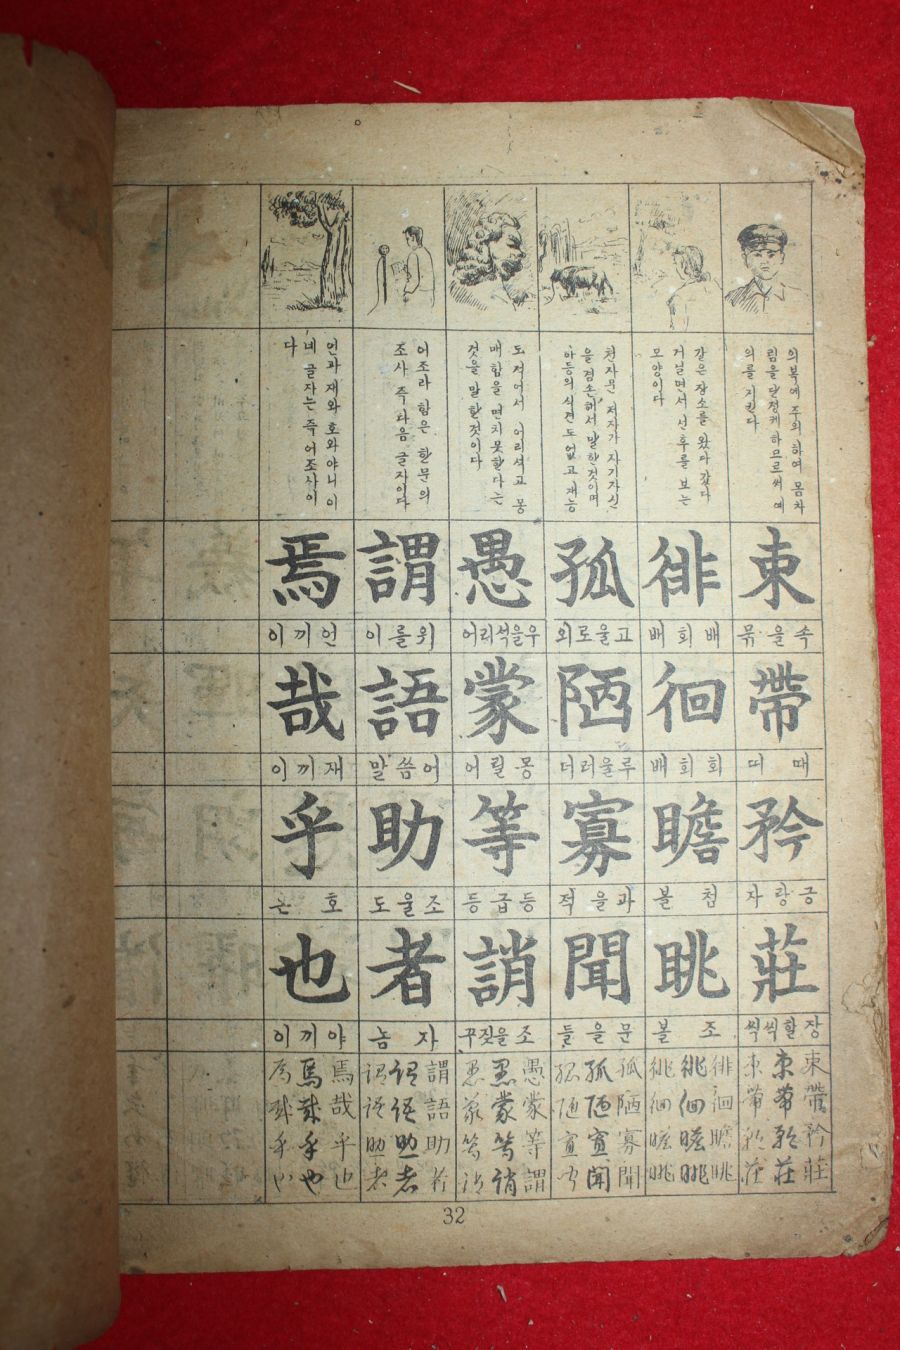 의복에 주의하여 몸차
림을 단정케 하므로써 예
의를 지킨다
束
묶을속
帶
띠대
矜
자랑긍
莊
씩씩할장
같은 장소를 왔다 갔다
거닐면서 선후를 보는
모양이다
徘
배회배
徊
배회회
瞻
볼첨
眺
볼조
천자문 저자가 자기가신
을 겸손해서 말한것이며
아등의 식견도 없고 재능
孤
외로울고
陋
더러울루
寡
적을과
聞
들을문
도 적어서 어리석고 몽
매함을 면치못한다는
것을 말한것이다
愚
어리석을우
蒙
어릴몽
等
등급등
誚
꾸짖을조
어조라 함은 한문의
조사 즉 다음 글자이다
謂
이를위
語
말씀어
助
도울조
者
놈자
언과 재와 호와 야니 이
네 글자는 즉 어조사이
다
焉
이끼언
哉
이끼재
乎
온호
也
이끼야
束帶矜莊
束帶矜莊
束帶矜莊
徘徊瞻眺
徘徊瞻眺
徘徊瞻眺
孤陋寡聞
孤陋寡聞
孤陋寡聞
愚蒙等謂
愚蒙等誚
愚蒙等誚
謂語助者
謂語助者
謂語助者
焉哉乎也
焉哉乎也
焉哉乎也
32